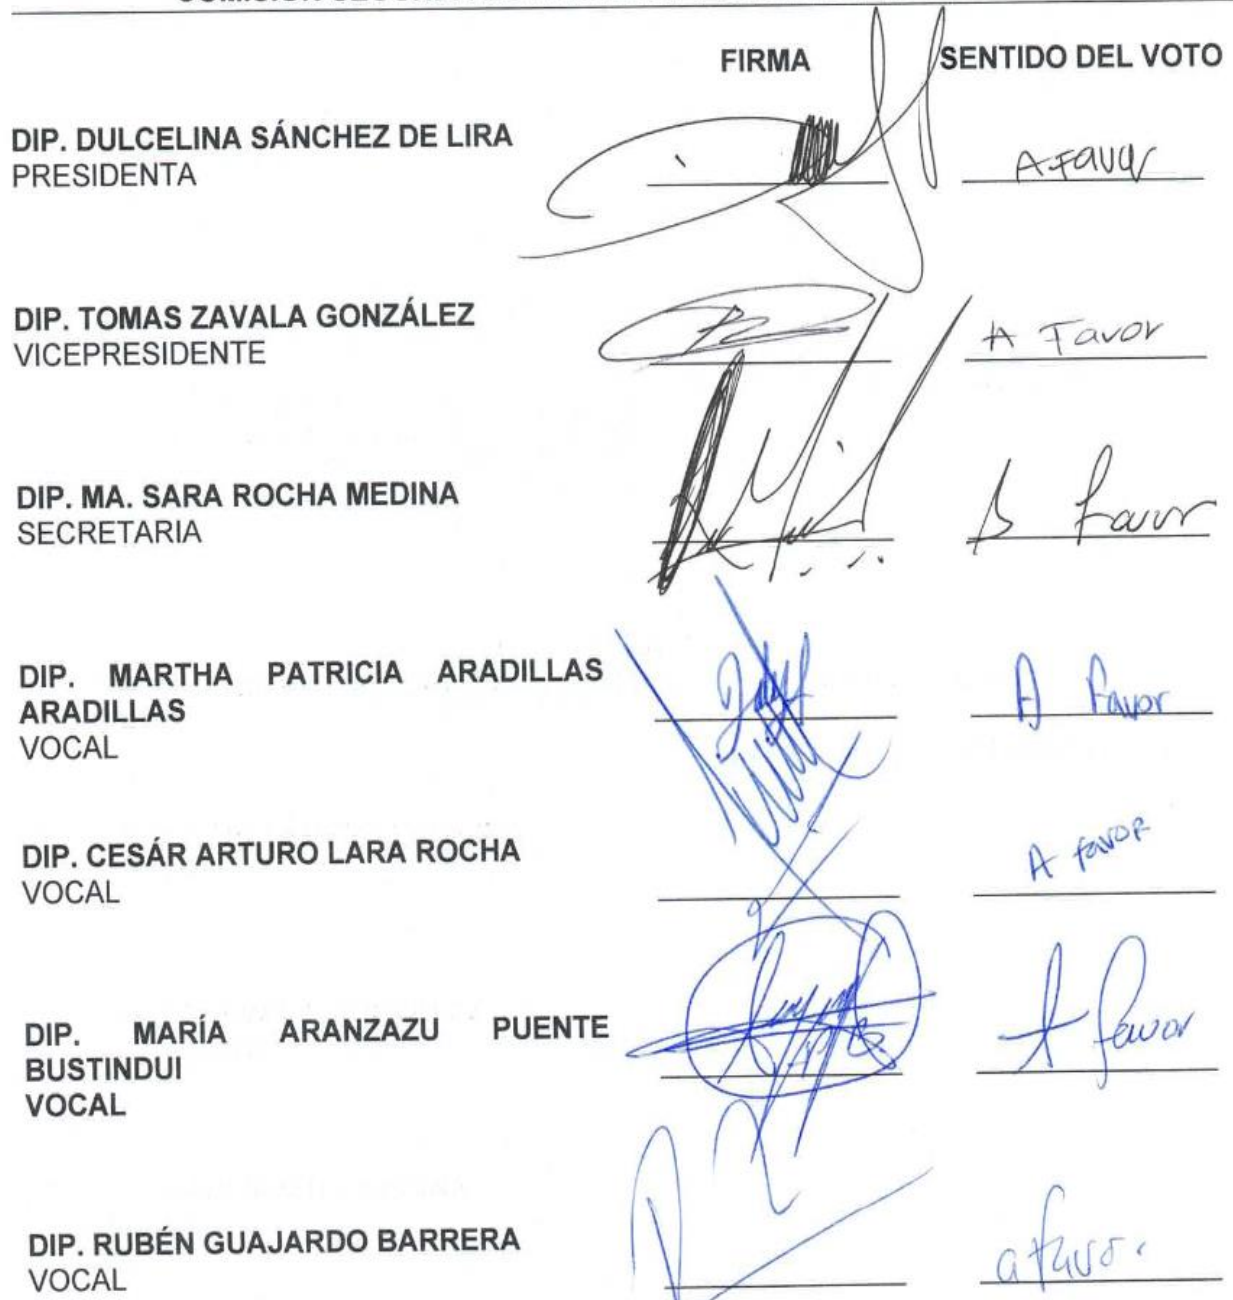 FIRMA SENTIDO DEL VOTO
DIP. DULCELINA SÁNCHEZ DE LIRA
PRESIDENTA
A Favor
DIP. TOMAS ZAVALA GONZÁLEZ
VICEPRESIDENTE
A Favor
DIP. MA. SARA ROCHA MEDINA
SECRETARIA
A favor
DIP. MARTHA PATRICIA ARADILLAS
ARADILLAS
VOCAL
A Favor
DIP. CESÁR ARTURO LARA ROCHA
VOCAL
A favor
DIP. MARÍA ARANZAZU PUENTE
BUSTINDUI
VOCAL
A favor
DIP. RUBÉN GUAJARDO BARRERA
VOCAL
a favor